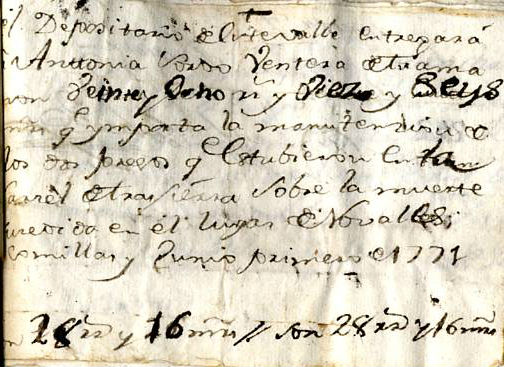 el Depositario de este valle entregará
Anttonia Ventera
Veinte y Ocho rs y Diez y Seys
mrs q ymporta la manutension de
los dos presos q estubieron en la
carzel de trasierra sobre la muerte
en el lugar de Novalles
Comillas y Junio primero de 1771
28 rrs y 16 mrs // son 28 rrs y 16 mrs